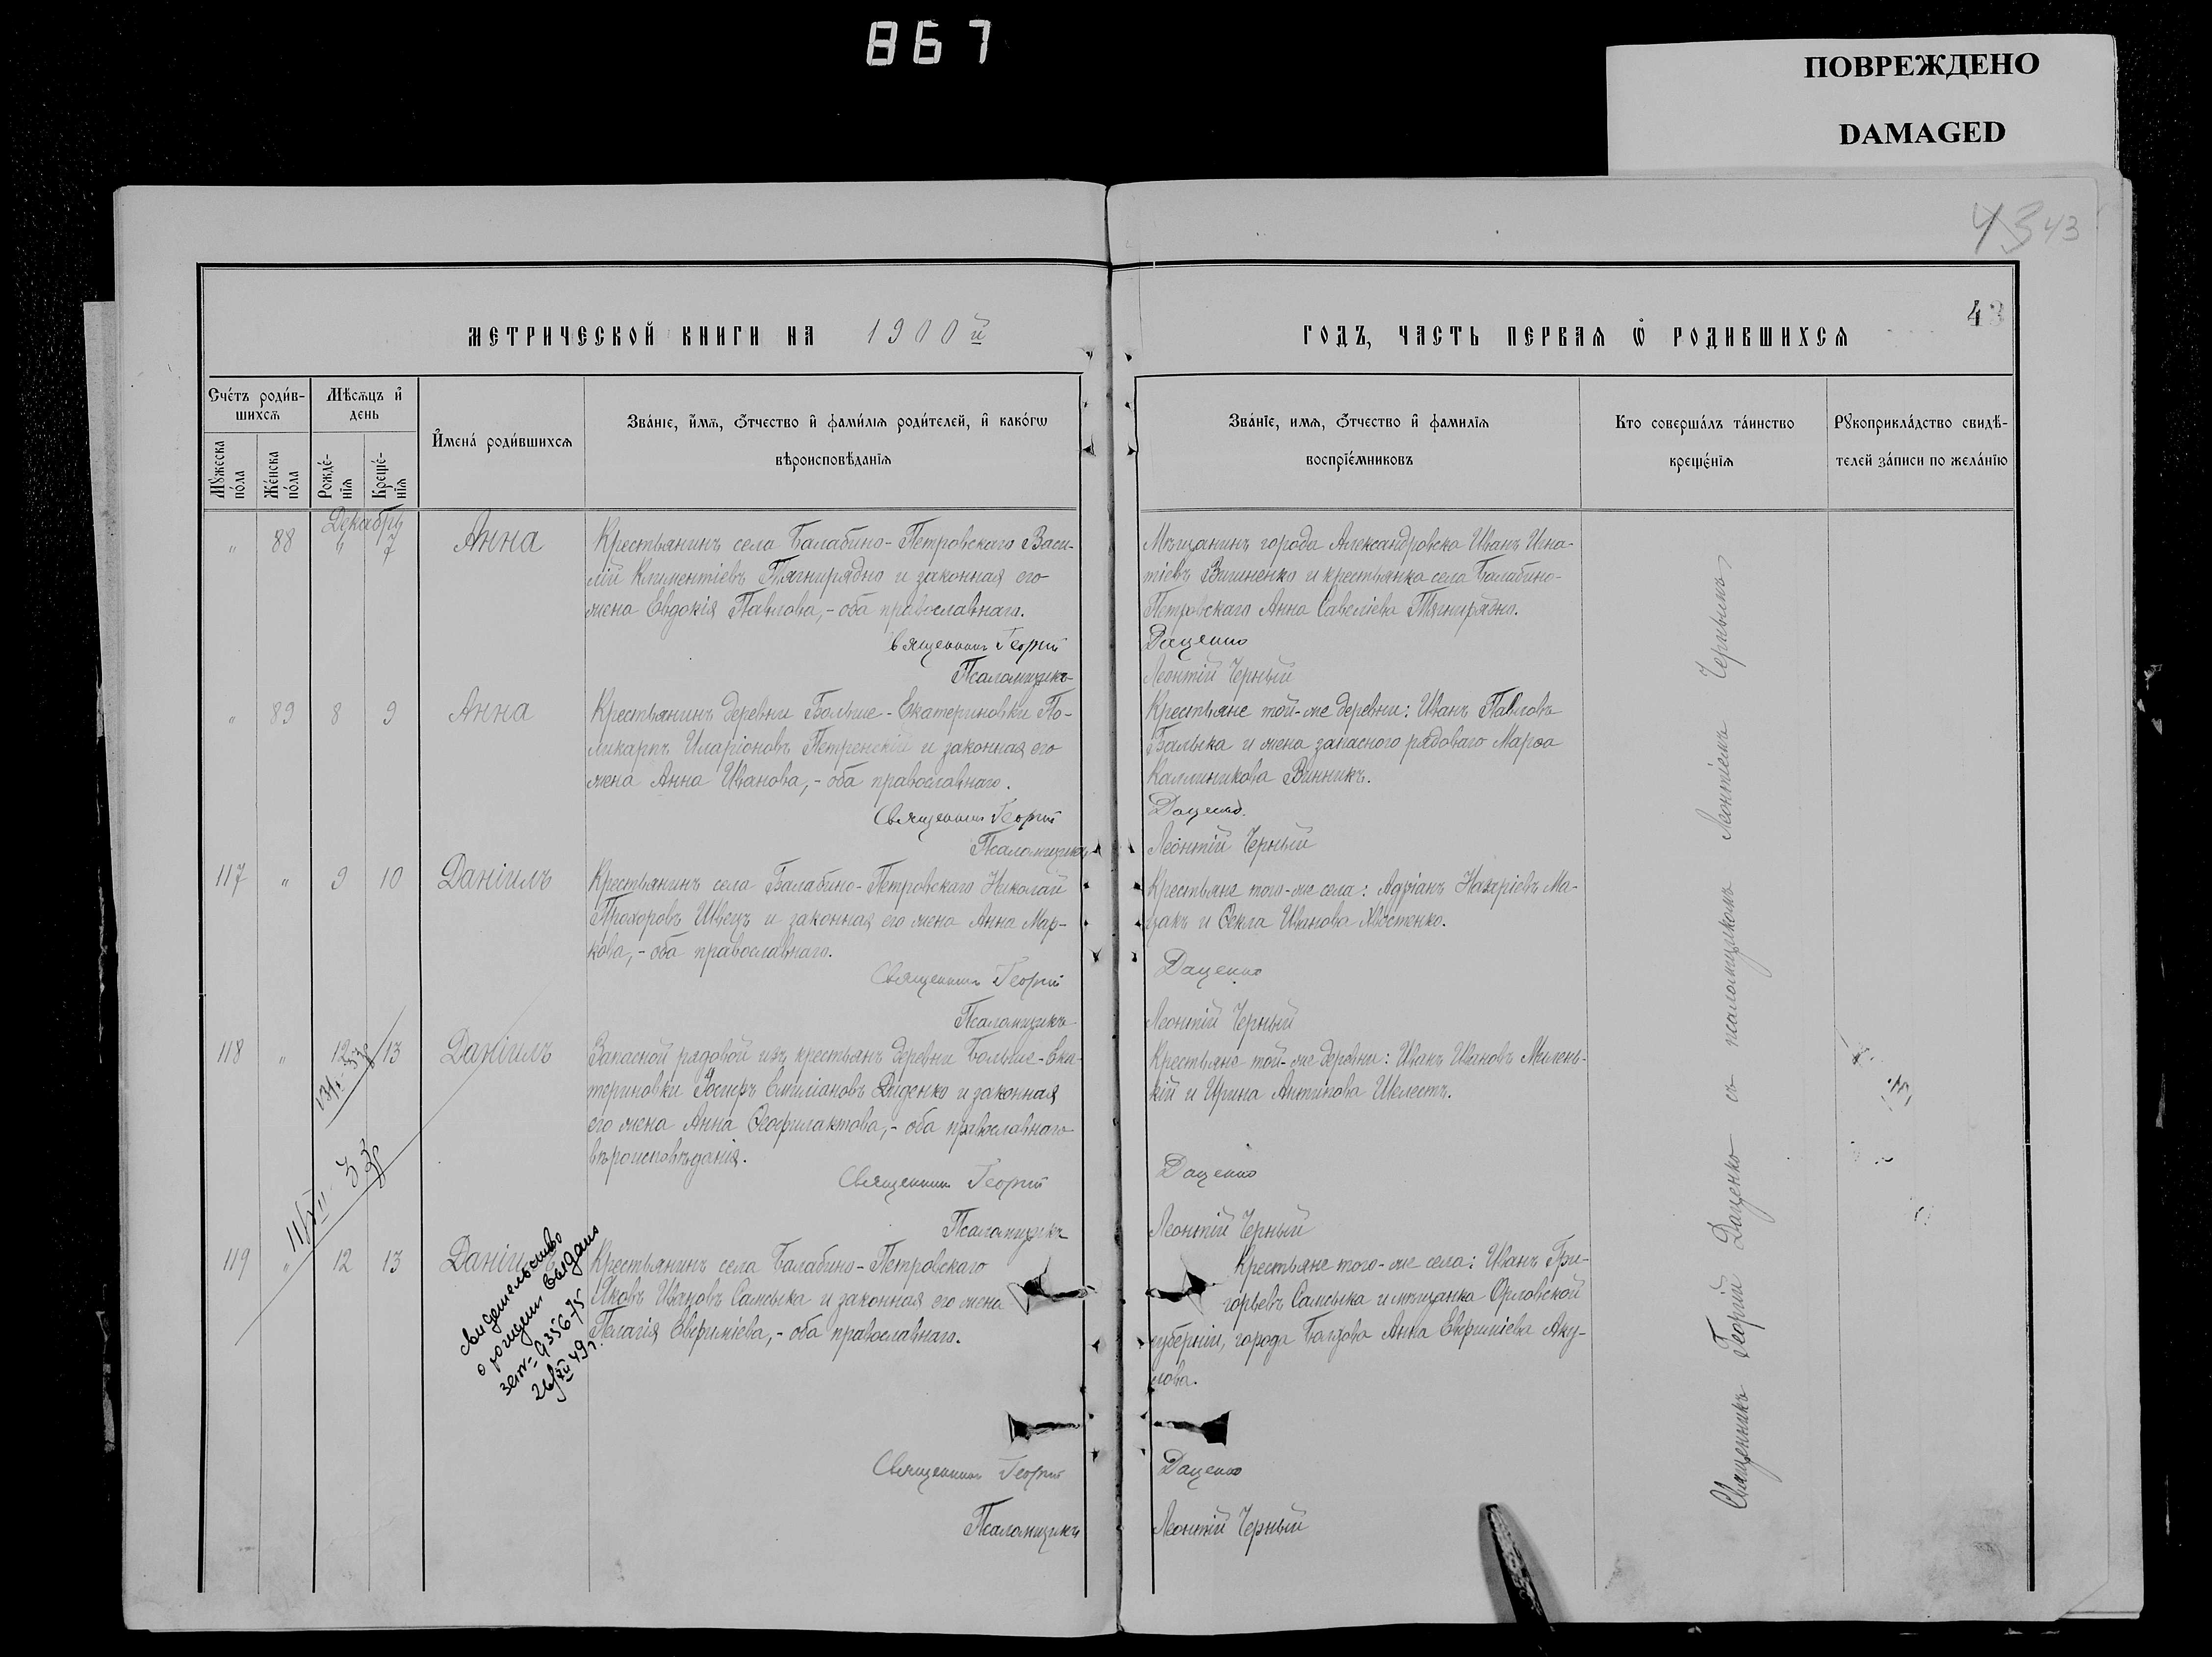 867
ПОВРЕЖДЕНО
DAMAGED
43 43
43
МЕТРИЧЕСКОЙ КНИГИ НА 1900й
ГОДЪ, ЧАСТЬ ПЕРВАѦ Ѿ РОДИВШИХСѦ
Счетъ родив-
шихсѧ
Мужеска пола
Женска пола
Мѣсѧцъ и
день
Рожде-
нія
Креще-
нія
Имена родившихсѧ
Званіе, имѧ, отчество и фамиліѧ родителей, и какогѡ
вѣроисповѣданіѧ
Званіе, имѧ, отчество и фамиліѧ
воспріемниковъ
Кто совершалъ таинство
крещеніѧ
Рукоприкладство свидѣ-
телей записи по желанію
Декабрь
" 88 " 7 Анна
Крестьянинъ села Балабино-Петровскаго Васи-
лій Климентіевъ Тягнирядно и законная его
жена Евдокія Павлова,- оба православнаго.
Священникъ Георгій
Псаломщикъ
Мѣщанинъ города Александровска Иванъ Игна-
тіевъ и крестьянка села Балабино-
Петровскаго Анна Савеліева Тягнирядно.
Даценко
Леонтій Черный
" 89 8 9 Анна
Крестьянинъ деревни Больше-Екатериновки По-
ликарпъ Иларіоновъ Петренскій и законная его
жена Анна Иванова,- оба православнаго.
Священникъ Георгій
Псаломщикъ
Крестьяне той-же деревни: Иванъ Павловъ
Балыка и жена запасного рядоваго Марѳа
Каллиникова Винникъ.
Даценко
Леонтій Черный
117 " 9 10 Даніилъ
Крестьянинъ села Балабино-Петровскаго Николай
Прохоровъ Швецъ и законная его жена Анна Мар-
кова,- оба православнаго.
Священникъ Георгій
Псаломщикъ
Крестьяне того-же села: Адріанъ Назаріевъ Ма-
закъ и Ѳекла Иванова Хвостенко.
Даценко
Леонтій Черный
118 " 12 13 Даніилъ
Запасной рядовой изъ крестьянъ деревни Больше-Ека-
териновки Іосифъ Емиліановъ Диденко и законная
его жена Анна Ѳеофилактова,- оба православнаго
вѣроисповѣданія.
Священникъ Георгій
Псаломщикъ
Крестьяне той-же деревни: Иванъ Ивановъ Милень-
кій и Ирина Антипова Шелестъ.
Даценко
Леонтій Черный
119 " 12 13 Даніилъ
Крестьянинъ села Балабино-Петровскаго
Яковъ Ивановъ Самсыка и законная его жена
Пелагія Евфиміева,- оба православнаго.
свидетельство
о рождении выдано
9356-75
26/XII 49 г.
Священникъ Георгій
Псаломщикъ
Крестьяне того-же села: Иванъ Гри-
горьевъ Самсыка и мѣщанка Орловской
губерніи, города Болхова Анна Евфиміева Аку-
лова.
Даценко
Леонтій Черный
Священникъ Георгій Даценко съ псаломщикомъ Леонтіемъ Чернымъ